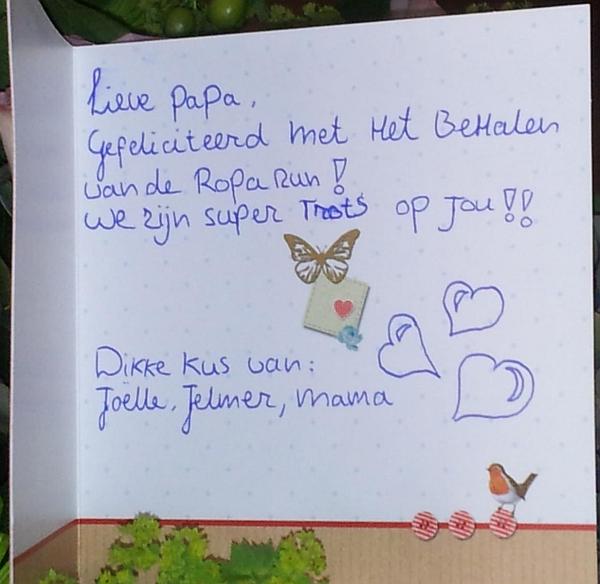 Lieve papa,
Gefeliciteerd met Het BeHalen
van de Ropa Run!
we zijn super Trots op jou!!
Dikke kus van:
Joëlle, Jelmer, mama